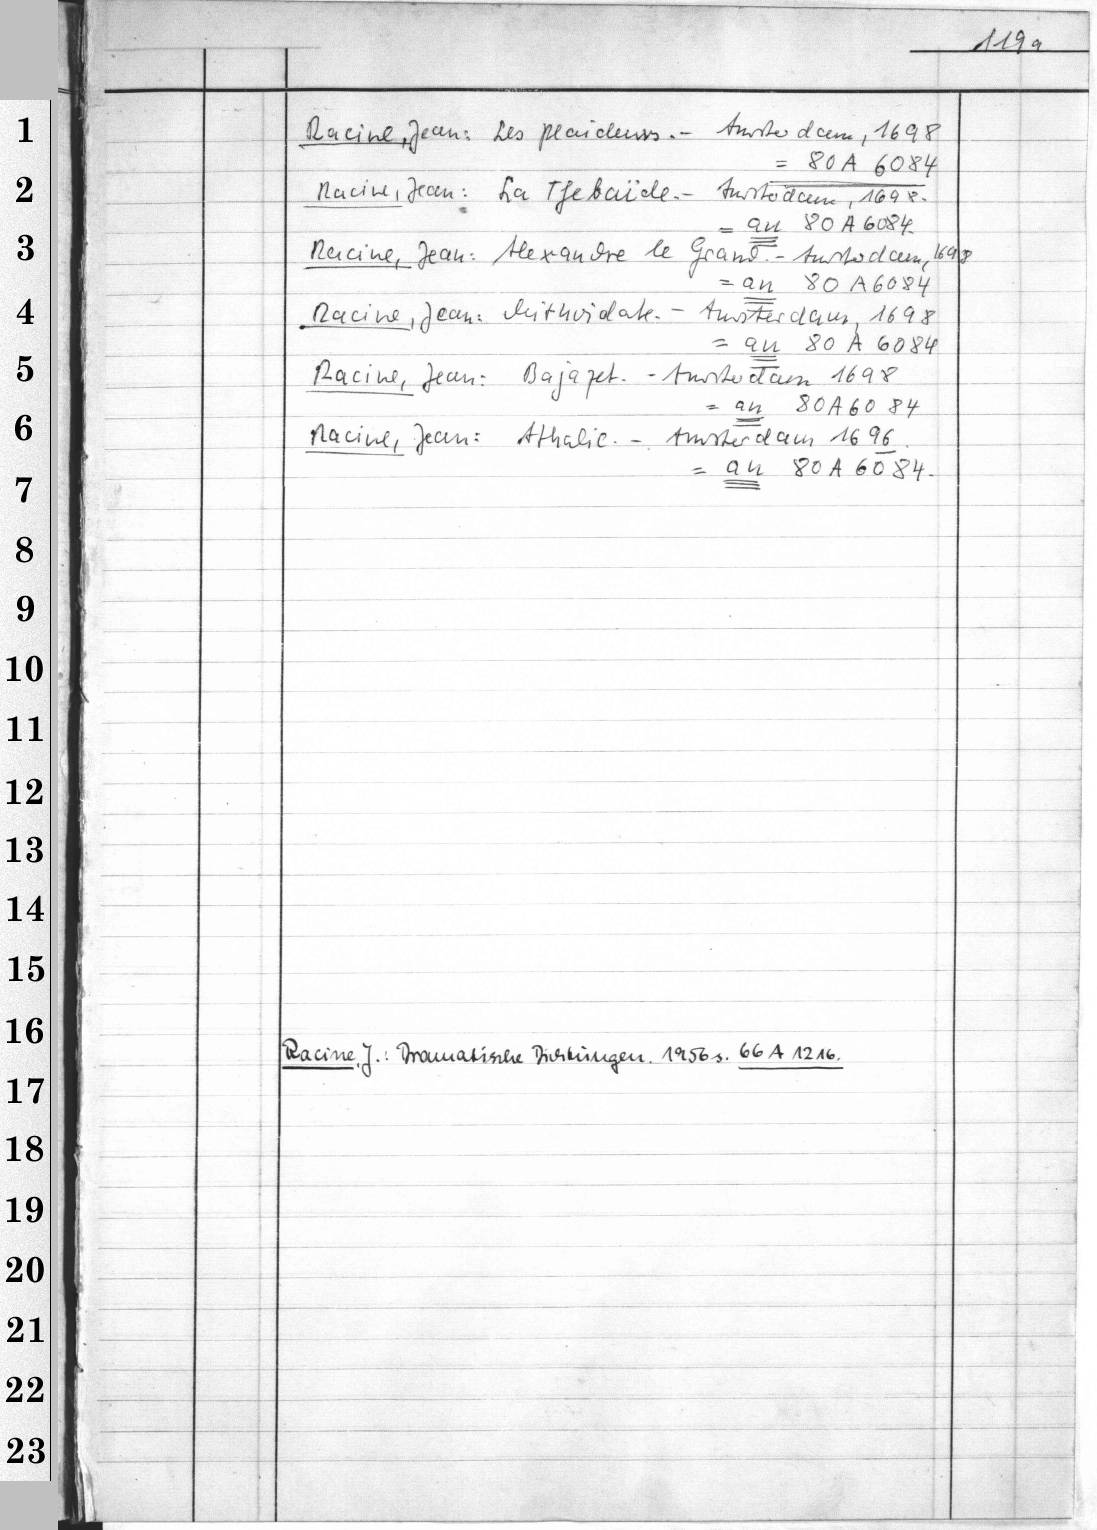 119a
1
Racine, Jean: Les plaideurs. - Amsterdam, 1698
= 80 A 6084
2
Racine, Jean: La Thebaïde. - Amsterdam, 1698.
= an 80 A 6084
3
Racine, Jean: Alexandre le Grand. - Amsterdam, 1698
= an 80 A 6084
4
Racine, Jean: Mithridate. - Amsterdam, 1698
= an 80 A 6084
5
Racine, Jean: Bajazet. - Amsterdam 1698
= an 80 A 6084
6
Racine, Jean: Athalie. - Amsterdam 1696.
= an 80 A 6084.
7
8
9
10
11
12
13
14
15
16
Racine, J.: Dramatische Dichtungen. 1956 s. 66 A 1216.
17
18
19
20
21
22
23